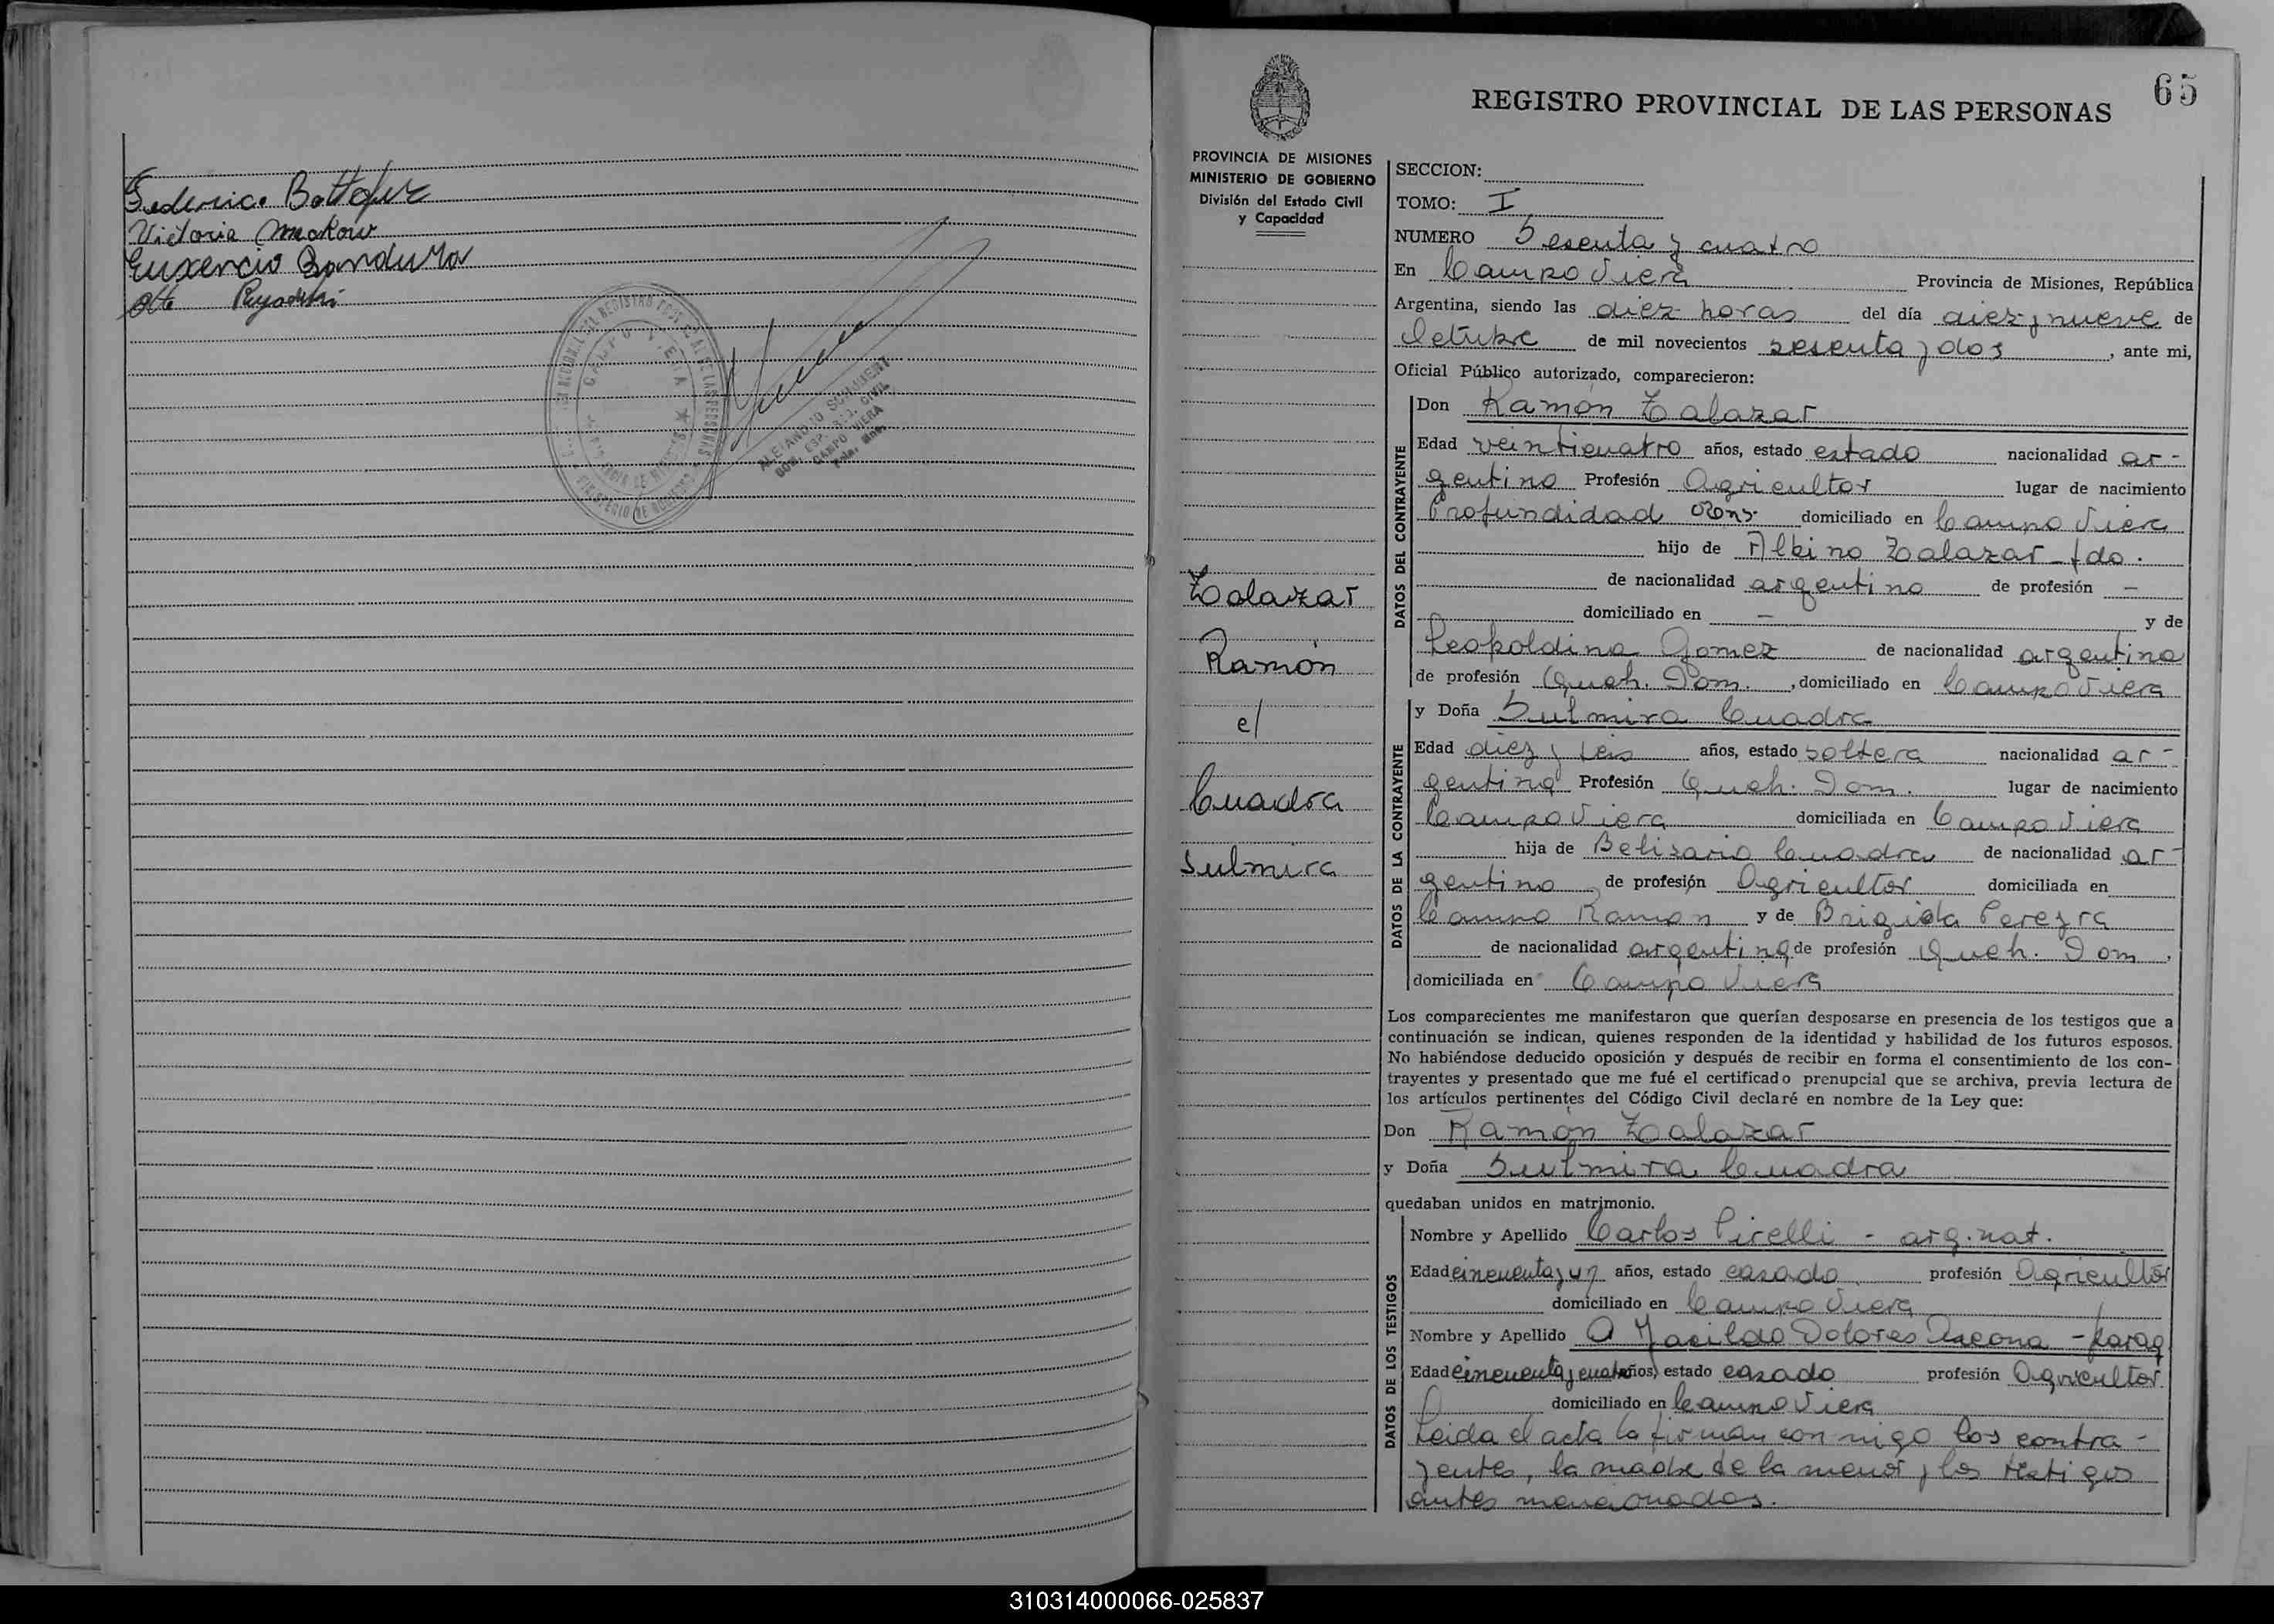 Federico
Victoria Makow
Euxencio Bandura
Otto
CAMPO VIERA
ALEJANDRO
CAMPO VIERA
65
REGISTRO PROVINCIAL DE LAS PERSONAS
PROVINCIA DE MISIONES
MINISTERIO DE GOBIERNO
División del Estado Civil
y Capacidad
Zalazar
Ramón
c/
Cuadra
Sulmira
SECCION:
TOMO: I
NUMERO Sesenta y cuatro
En Campo Viera Provincia de Misiones, República
Argentina, siendo las diez horas del día diez y nueve de
Octubre de mil novecientos sesenta y dos, ante mi,
Oficial Público autorizado, comparecieron:
DATOS DEL CONTRAYENTE
Don Ramón Zalazar
Edad veinticuatro años, estado estado nacionalidad ar-
gentino Profesión Agricultor lugar de nacimiento
Profundidad Mons. domiciliado en Campo Viera
hijo de Albino Zalazar - fdo.
de nacionalidad argentino de profesión —
domiciliado en — y de
Leopoldina Gomez de nacionalidad argentina
de profesión Queh. Dom., domiciliado en Campo Viera
DATOS DE LA CONTRAYENTE
y Doña Sulmira Cuadra
Edad diez y seis años, estado soltera nacionalidad ar-
gentina Profesión Queh. Dom. lugar de nacimiento
Campo Viera domiciliada en Campo Viera
hija de Belisario Cuadra de nacionalidad ar-
gentino, de profesión Agricultor domiciliada en
Campo Ramon y de Brigida Pereyra
de nacionalidad argentina de profesión Queh. Dom,
domiciliada en Campo Viera
Los comparecientes me manifestaron que querían desposarse en presencia de los testigos que a
continuación se indican, quienes responden de la identidad y habilidad de los futuros esposos.
No habiéndose deducido oposición y después de recibir en forma el consentimiento de los con-
trayentes y presentado que me fué el certificado prenupcial que se archiva, previa lectura de
los artículos pertinentes del Código Civil declaré en nombre de la Ley que:
Don Ramón Zalazar
y Doña Sulmira Cuadra
quedaban unidos en matrimonio.
DATOS DE LOS TESTIGOS
Nombre y Apellido Carlos Pirelli - arg. nat.
Edad cincuenta y un años, estado casado profesión Agricultor
domiciliado en Campo Viera
Nombre y Apellido Dolores - parag
Edad cincuenta y cuatro años, estado casado profesión Agricultor
domiciliado en Campo Viera
Leida el acta la firman con migo los contra-
yentes, la madre de la menor y los testigos
antes mencionados.
310314000066-025837